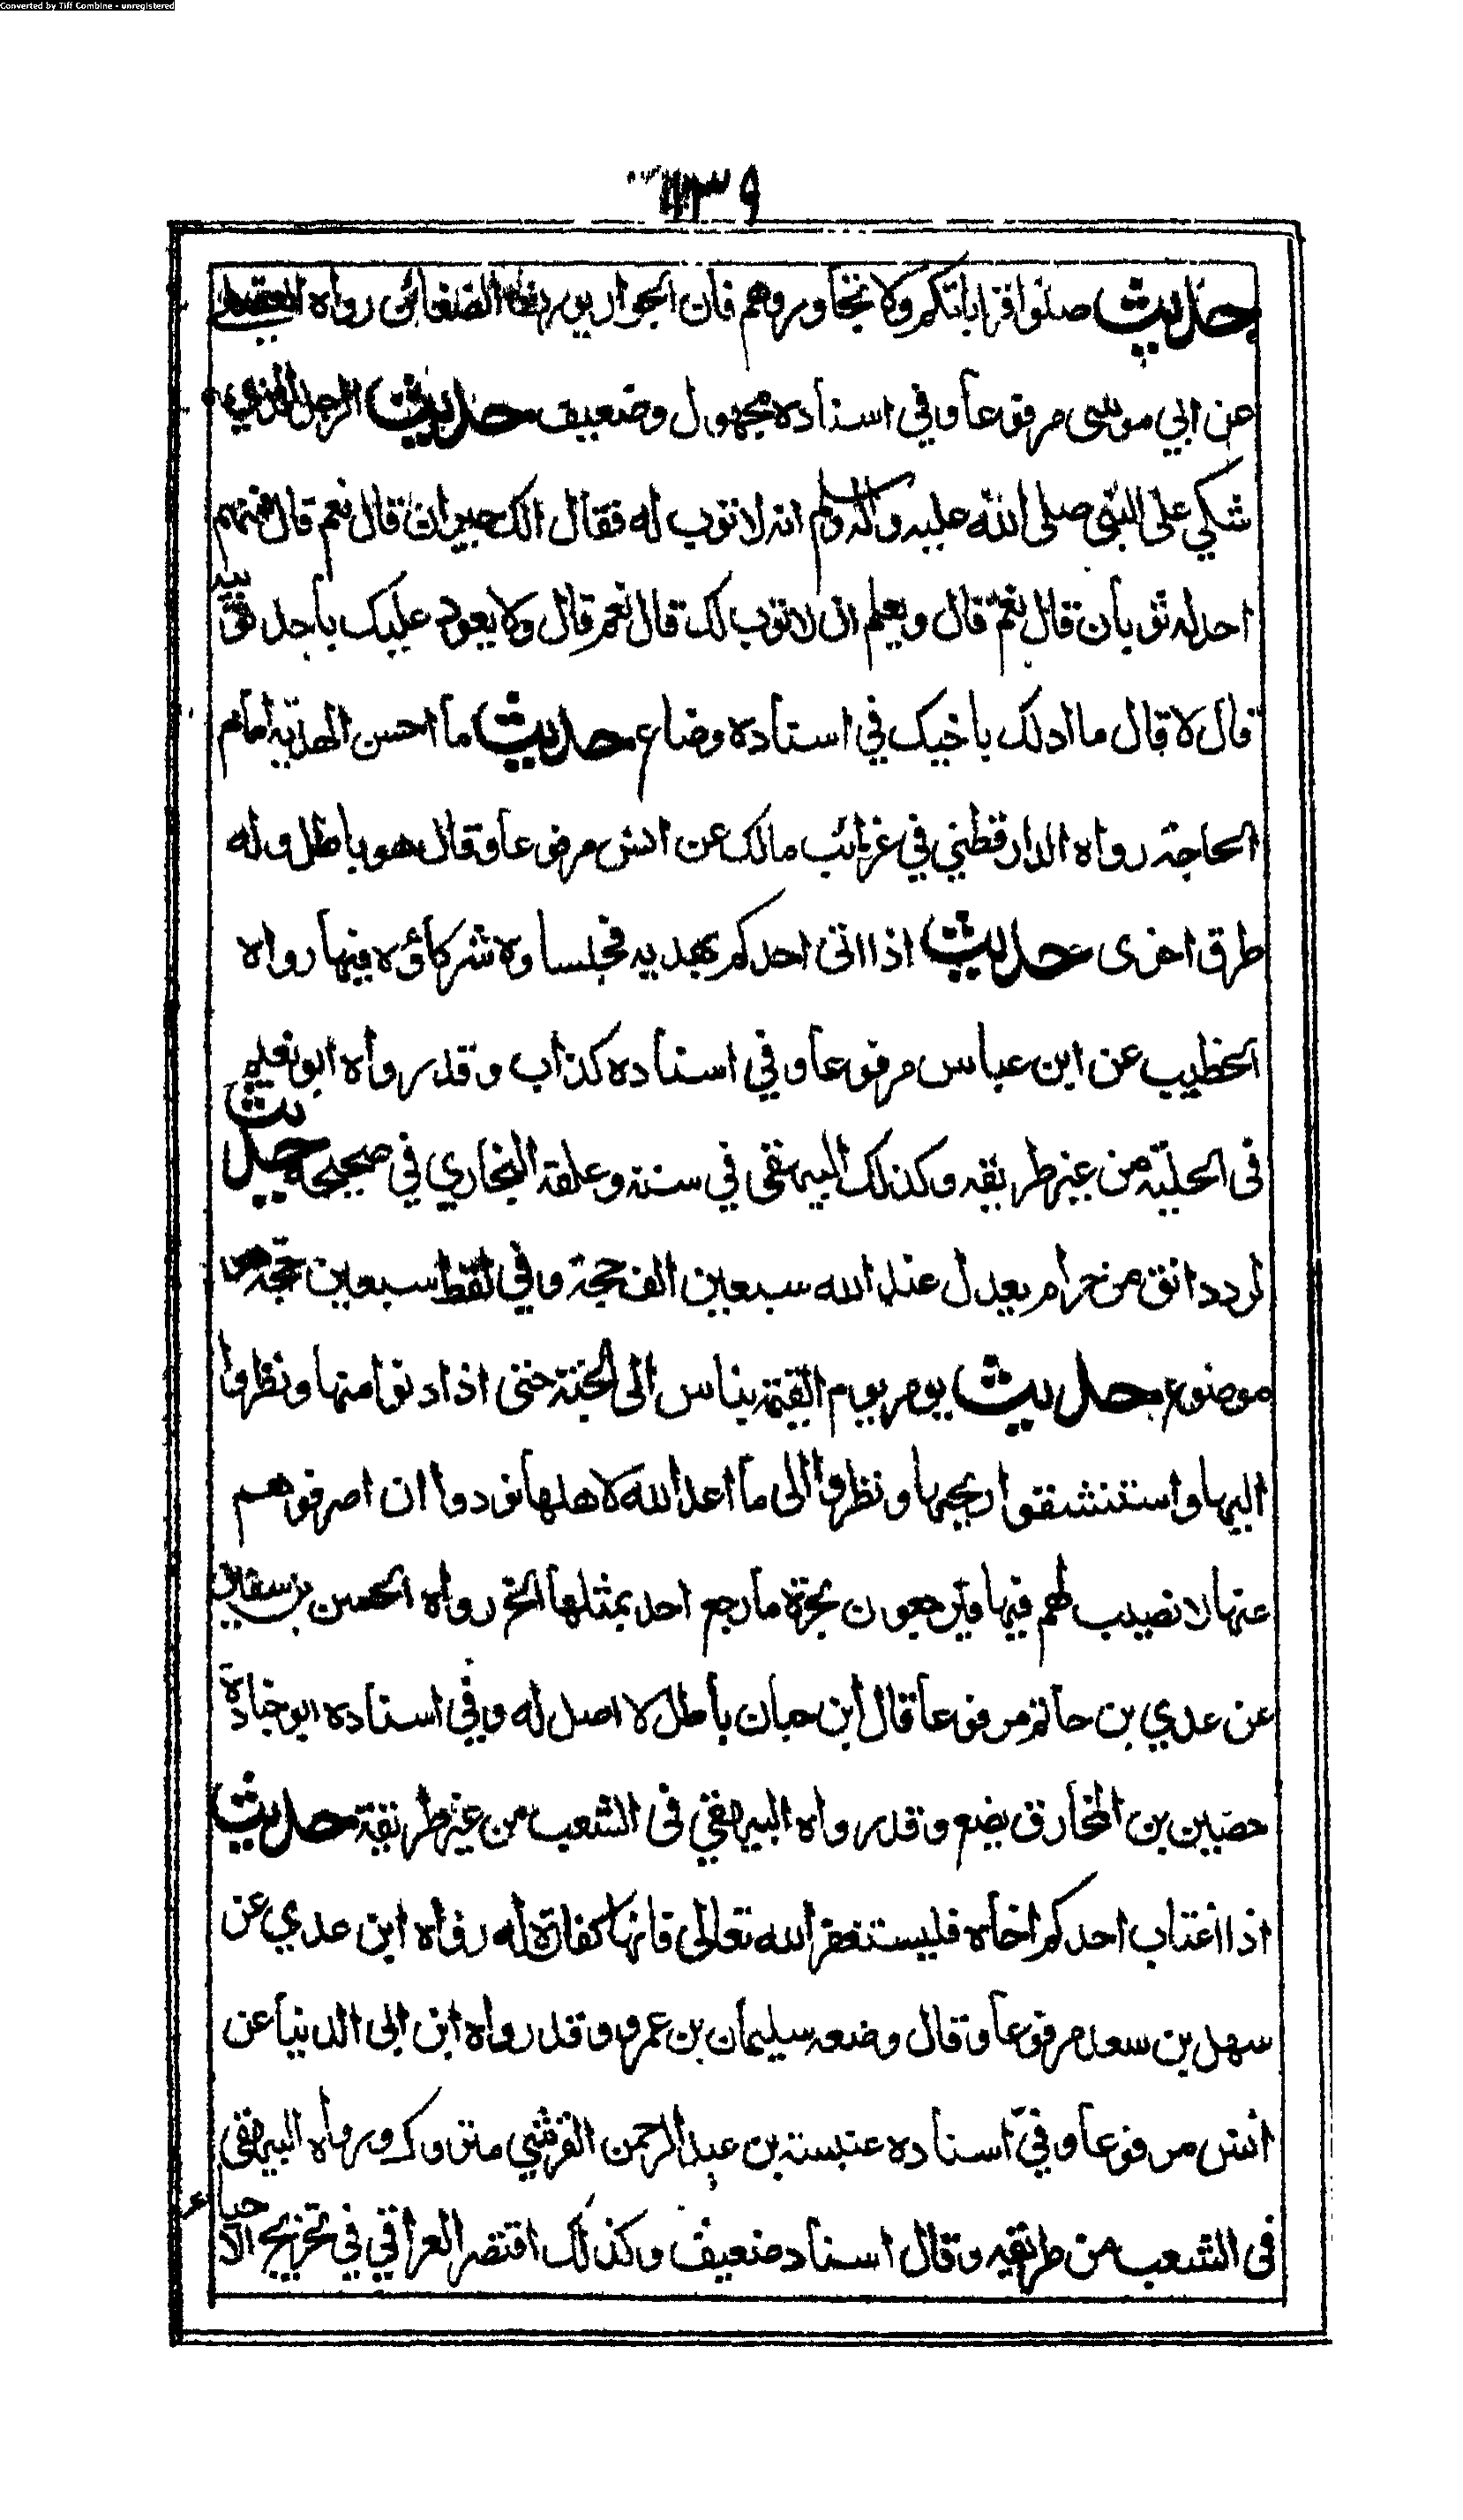 Converted by Tiff Combine - unregistered
١٣٩
حديث صلوا قراباتكم ولا تجاوروهم فان الجوار يورث الضغائن رواه العقيلي
عن ابي موسى مرفوعا وفي اسناده مجهول وضعيف حديث الرجل الذي
شكي على النبي صلى الله عليه وآله وسلم انه لا ثوب له فقال الك جيران قال نعم قال فمنهم
احد له ثوبان قال نعم قال ويعلم ان لا ثوب لك قال نعم قال ولا يعود عليك باحد ثوبيه
قال لا قال ما ادلك باخيك في اسناده وضاع حديث ما احسن الهدية امام
الحاجة رواه الدارقطني في غرائب مالك عن انس مرفوعا وقال هو باطل وله
طرق اخرى حديث اذا اتى احدكم بهدية فجلساوه شركاؤه فيها رواه
الخطيب عن ابن عباس مرفوعا وفي اسناده كذاب وقد رواه ابو نعيم
فى الحلية من غير طريقه وكذلك البيهقى في سننه وعلقه البخاري في صحيحه حديث
لرد دانق من حرام يعدل عند الله سبعين الف حجة وفي لفظ سبعين حجة
موضوع حديث يومر يوم القيمة بناس الى الجنة حتى اذا دنوا منها ونظروا
اليها واستنشقوا ريحها ونظروا الى ما اعد الله لاهلها نودوا ان اصرفوهم
عنها لا نصيب لهم فيها فيرجعون بحسرة ما رجع احد بمثلها الخ رواه الحسن بن سفيان
عن عدي بن حاتم مرفوعا قال ابن حبان باطل لا اصل له وفي اسناده ابو جنادة
حصين بن المخارق يضع وقد رواه البيهقي فى الشعب من غير طريقة حديث
اذا اغتاب احدكم اخاه فليستغفر الله تعالى فانها كفارة له رواه ابن عدي عن
سهل بن سعد مرفوعا وقال وضعه سليمان بن عمرو وقد رواه ابن ابى الدنيا عن
انس مرفوعا وفي اسناده عنبسة بن عبد الرحمن القرشي متروك ورواه البيهقى
فى الشعب من طريقه وقال اسناد ضعيف وكذلك اقتصر العراقي في تخريج الاحياء